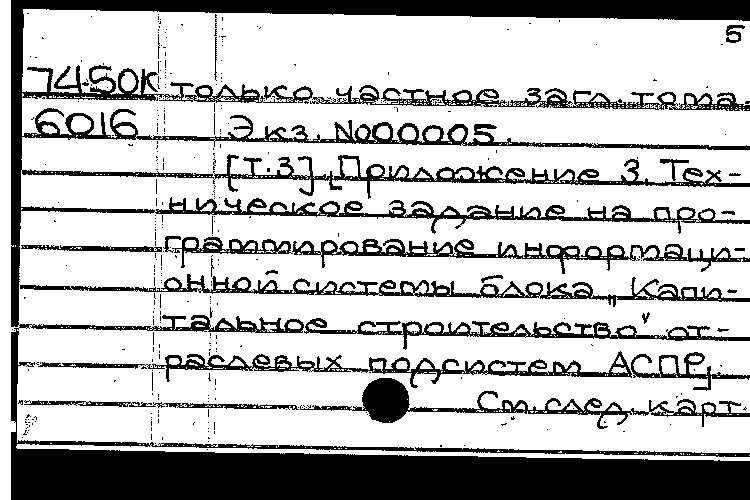 5
7450К только частное загл. тома
6016 Экз. №00005.
[Т.3] [Приложение 3. Тех-
ническое задание на про-
граммирование информаци-
онной системы блока „Капи-
тальное строительство" от-
раслевых подсистем АСПР]
См. след. карт.